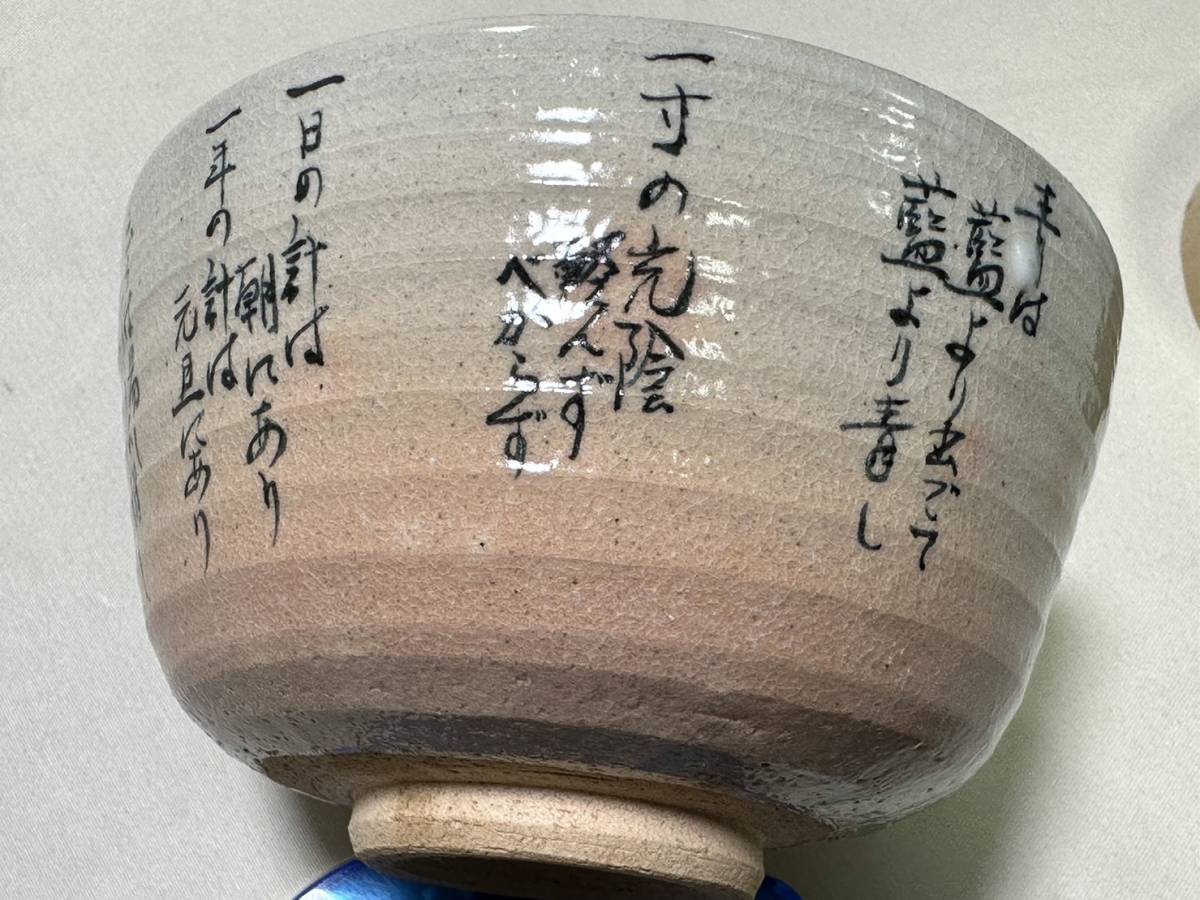 青は
藍より出でて
藍より青し
一寸の光陰
軽んず
べからず
一日の計は
朝にあり
一年の計は
元旦にあり